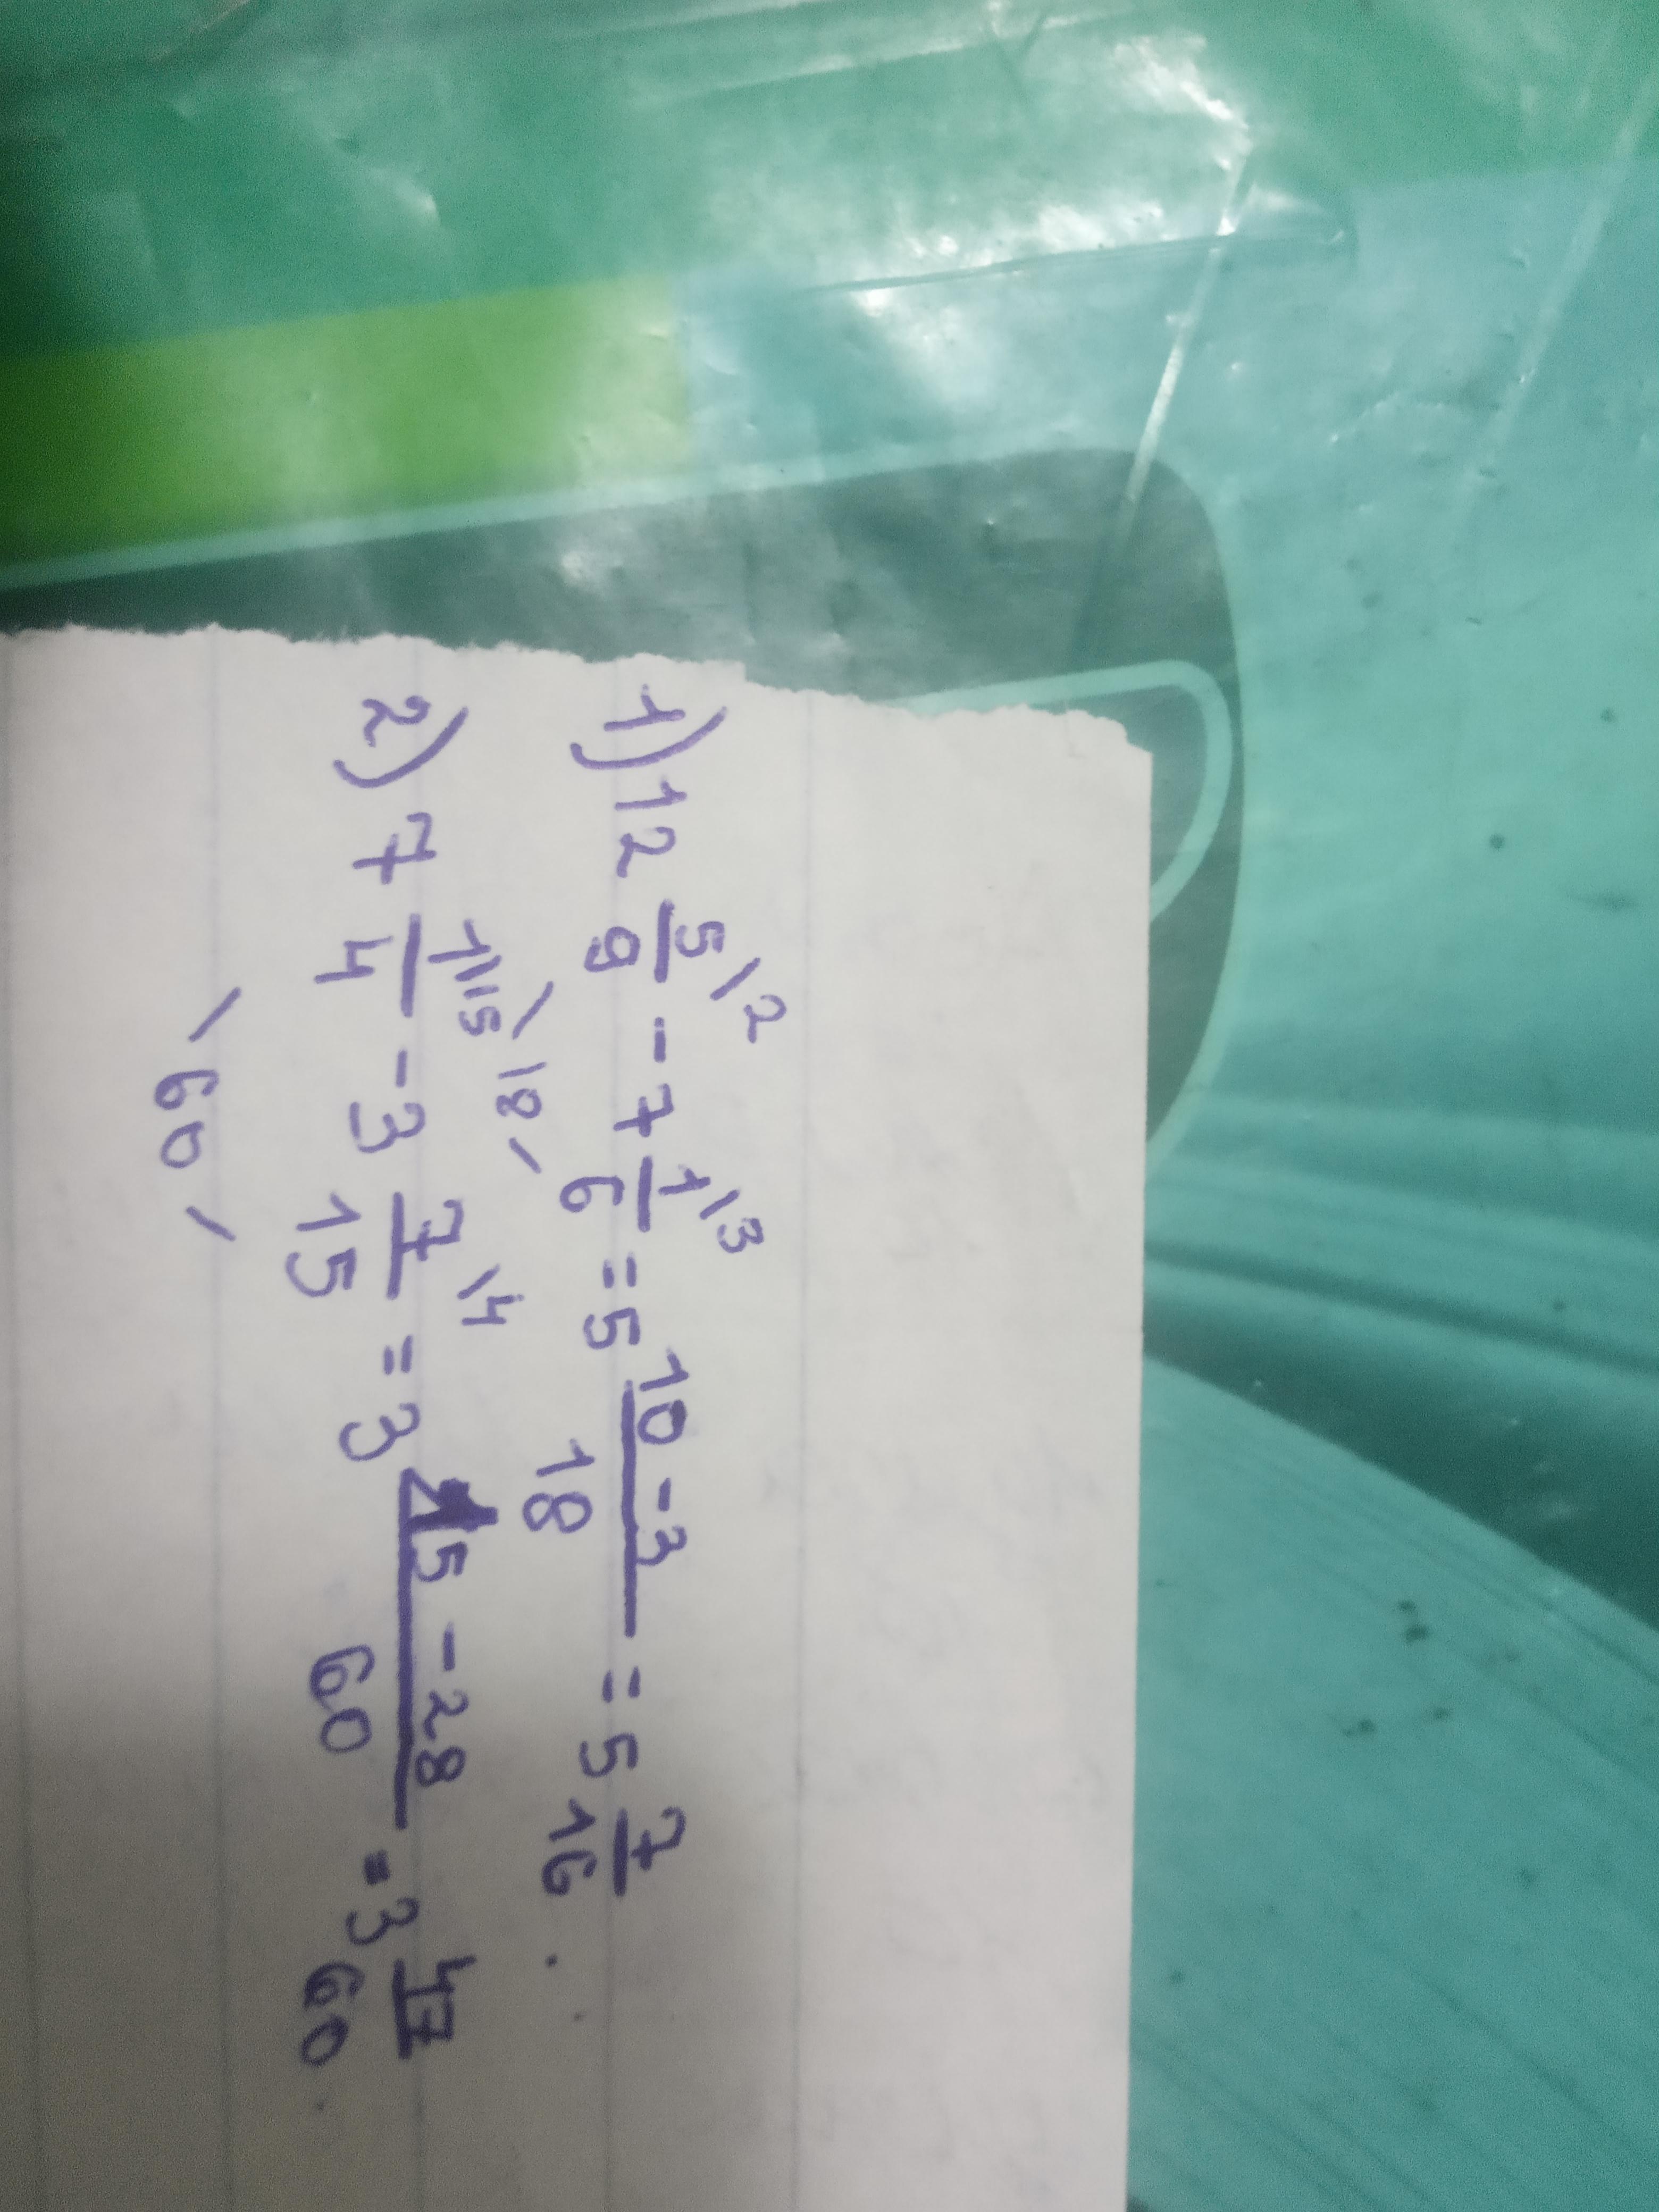 1) 12 5/9 \2 - 7 1/6 \3 = 5 10-3/18 = 5 7/16.
\18/
2) 7 1/4 \15 - 3 7/15 \4 = 3 75-28/60 = 3 47/60.
\60/